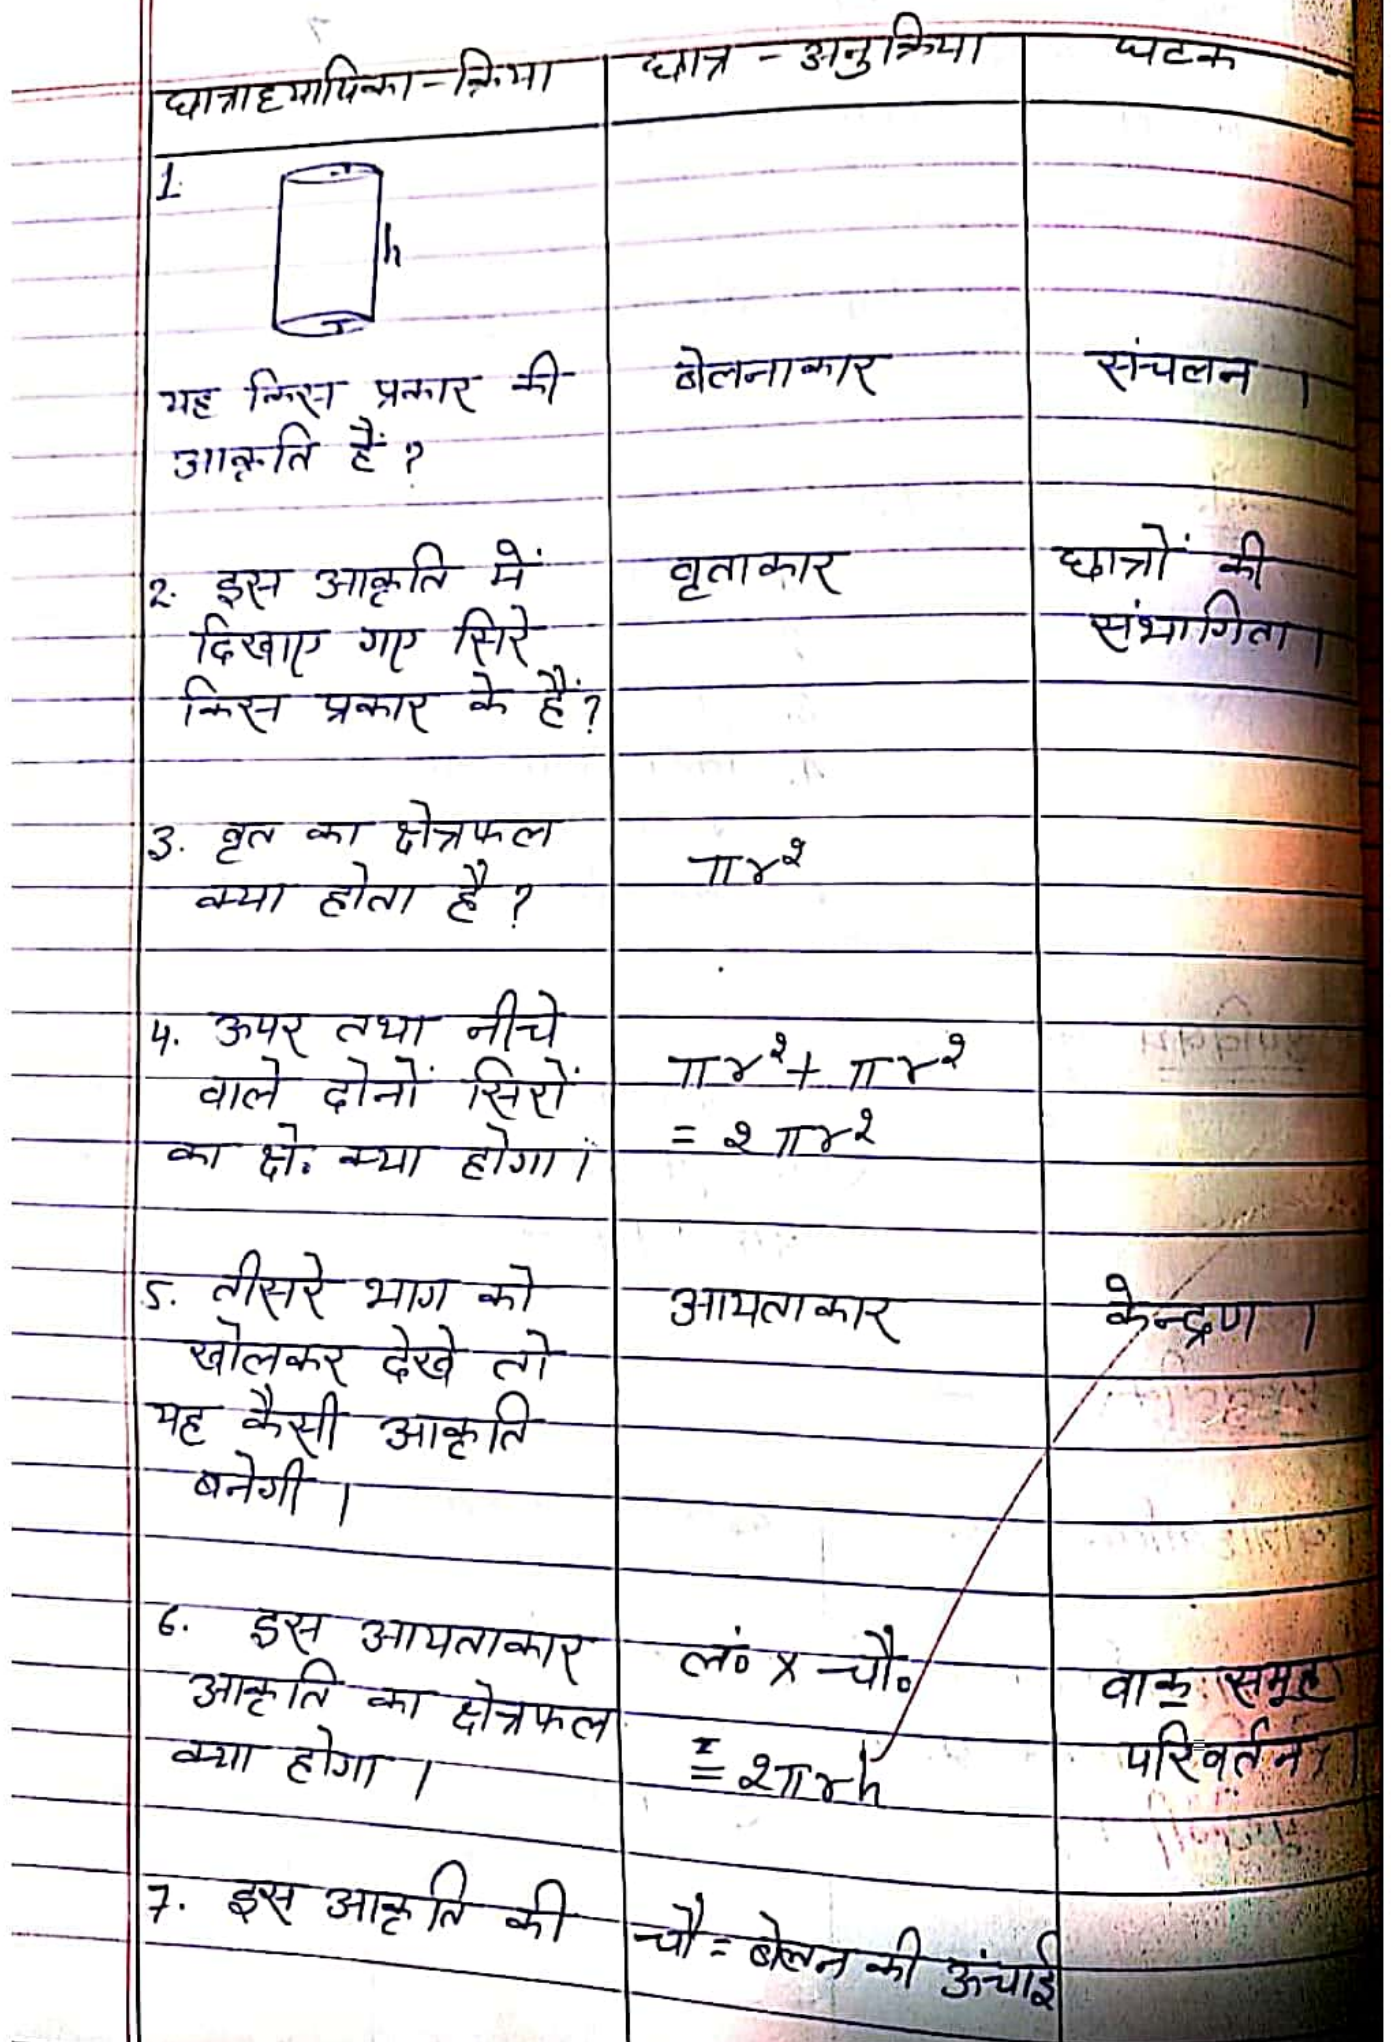 छात्राध्यापिका-क्रिया
छात्र - अनुक्रिया
घटक
1.
h
r
यह किस प्रकार की
आकृति हैं?
बेलनाकार
संचलन।
2. इस आकृति में
दिखाए गए सिरे
किस प्रकार के हैं?
वृताकार
छात्रों की
संभागिता।
3. वृत का क्षेत्रफल
क्या होता है?
πr²
4. ऊपर तथा नीचे
वाले दोनों सिरों
का क्षे. क्या होगा।
πr² + πr²
= 2πr²
5. तीसरे भाग को
खोलकर देखे तो
यह कैसी आकृति
बनेगी।
आयताकार
केन्द्रण।
6. इस आयताकार
आकृति का क्षेत्रफल
क्या होगा।
लं० x चौ०
= 2πrh
वाक् समूह
परिवर्तन।
7. इस आकृति की
चौ = बेलन की ऊंचाई